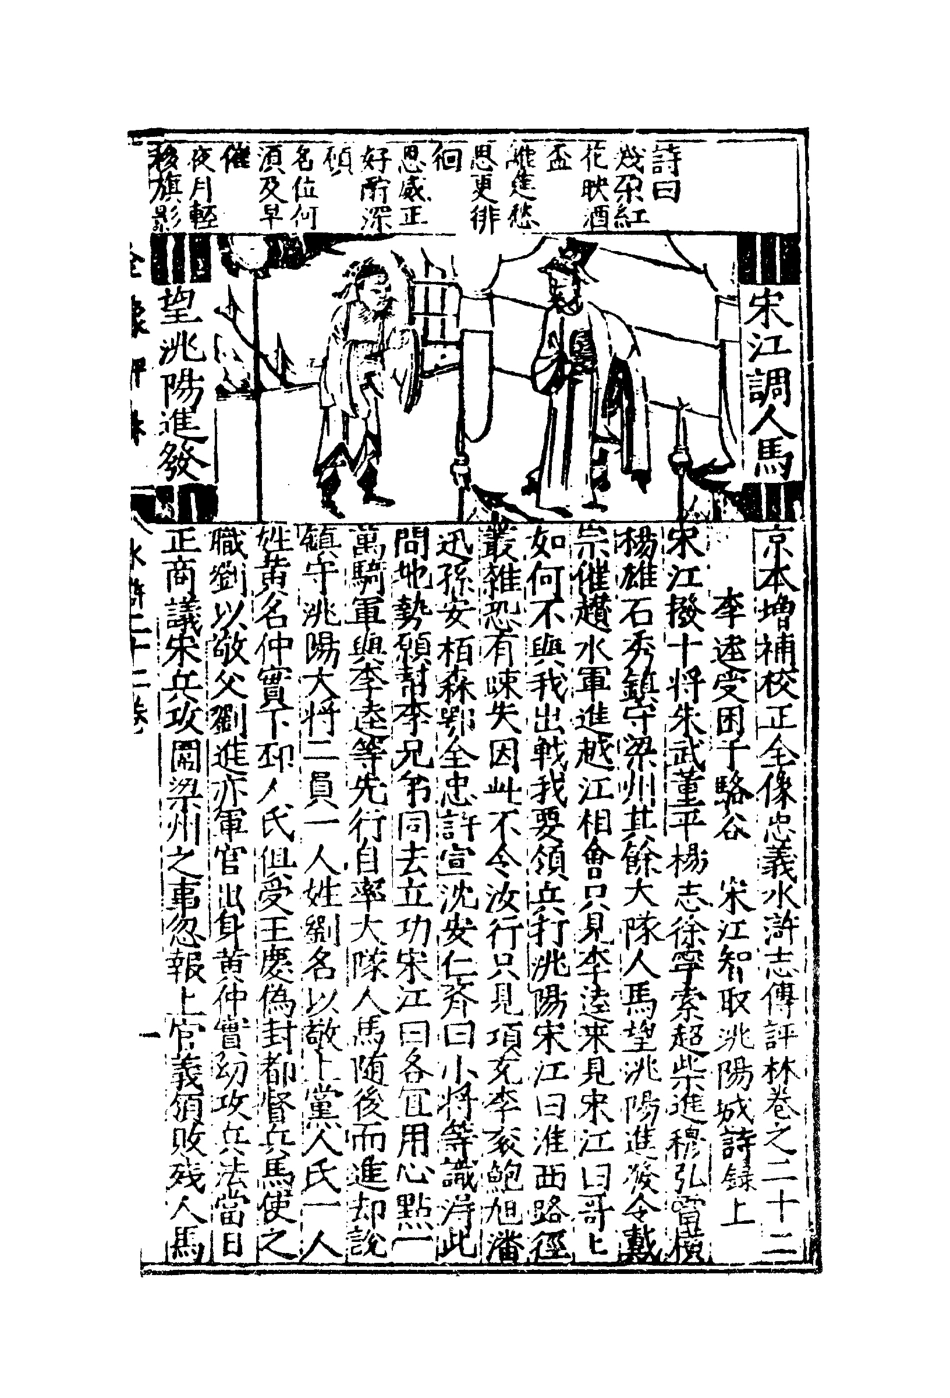 詩曰
幾朶紅
花映酒
盃
進愁
思更徘
徊
恩威正
好酧深
名位何
須及早
催
夜月輕
移旗影
宋江調人馬
望洮陽進發
京本增補校正全像忠義水滸志傳評林卷之二十二
李逵受困于駱谷　宋江智取洮陽城詩録上
宋江撥十将朱武董平楊志徐寧索超柴進穆弘雷橫
楊雄石秀鎮守梁州其餘大隊人馬望洮陽進發令戴
宗催趲水軍進越江相會只見李逵來見宋江曰哥匕
如何不與我出戰我要領兵打洮陽宋江曰淮西路徑
叢雜恐有疎失因此不令汝行只見項充李衮鮑旭潘
迅孫安栢森鄂全忠許宣沈安仁齊曰小将等識淂此
間地勢願幇李兄弟同去立功宋江曰各宜用心點一
萬騎軍與李逵等先行自率大隊人馬随後而進却説
鎮守洮陽大将二員一人姓劉名以敬上黨人氏一人
姓黄名仲實下邳人氏但受王慶偽封都督兵馬使之
職劉以敬父劉進亦軍官出身黄仲實幼攻兵法當日
正商議宋兵攻圍梁州之事忽報上官義領敗残人馬
全像評林
水滸二十二卷
一